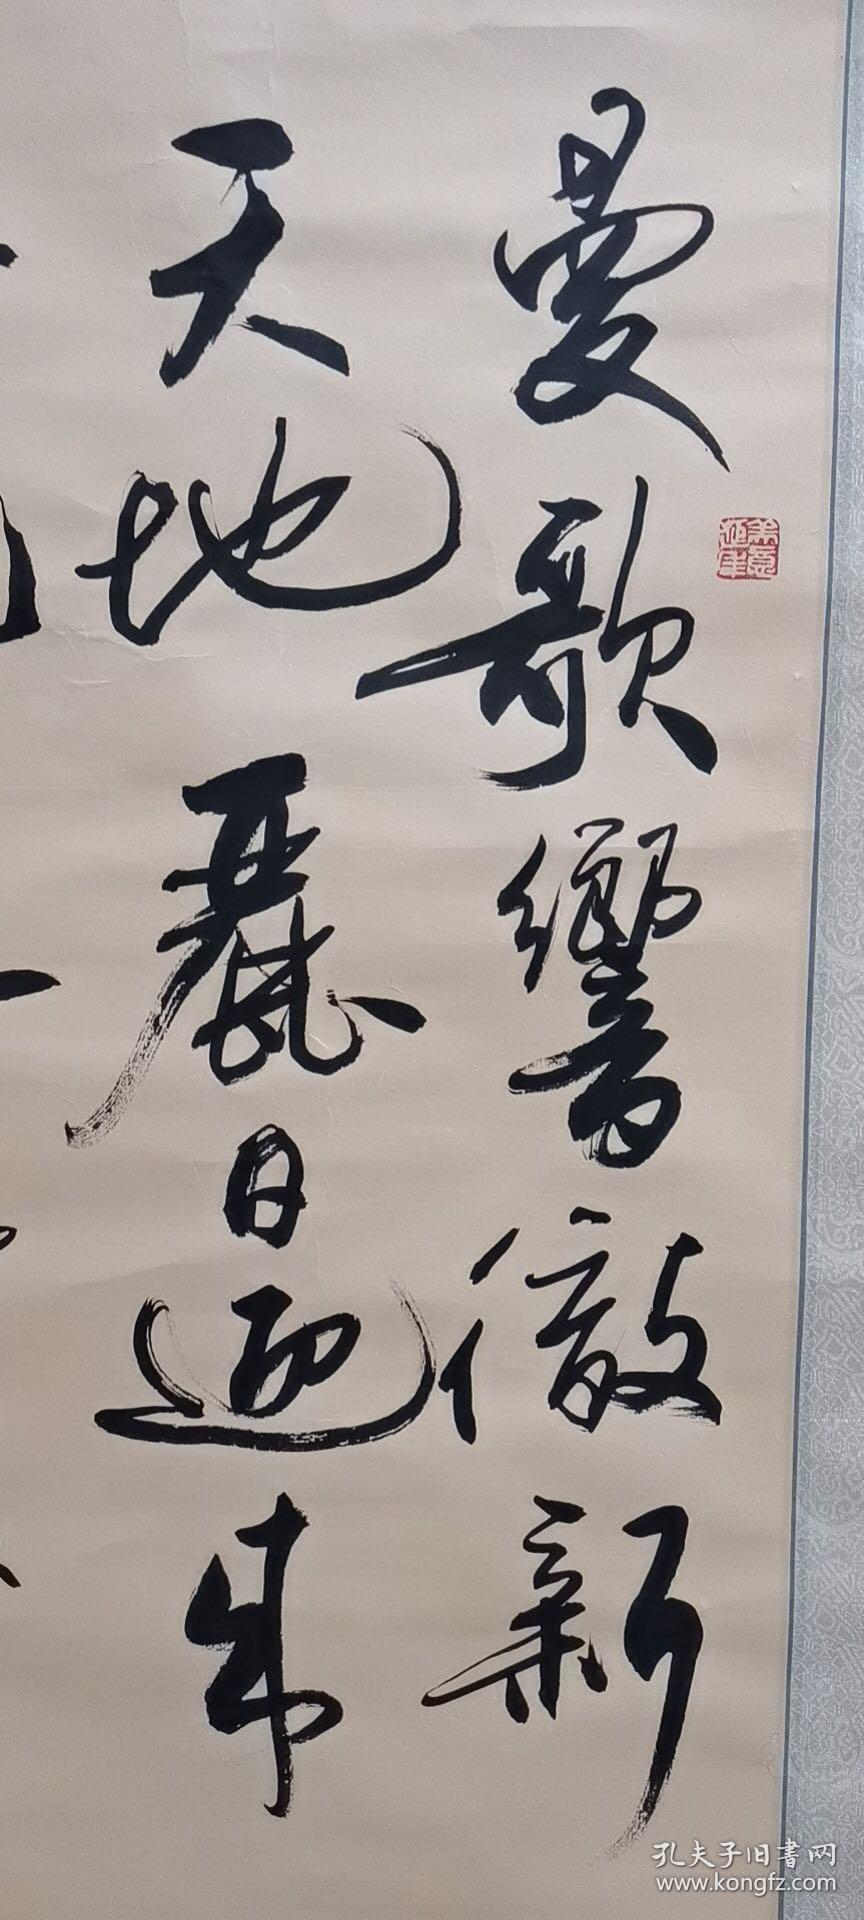 曼歌響徹新
天地麗日迎
美意延年
孔夫子旧書网
www.kongfz.com